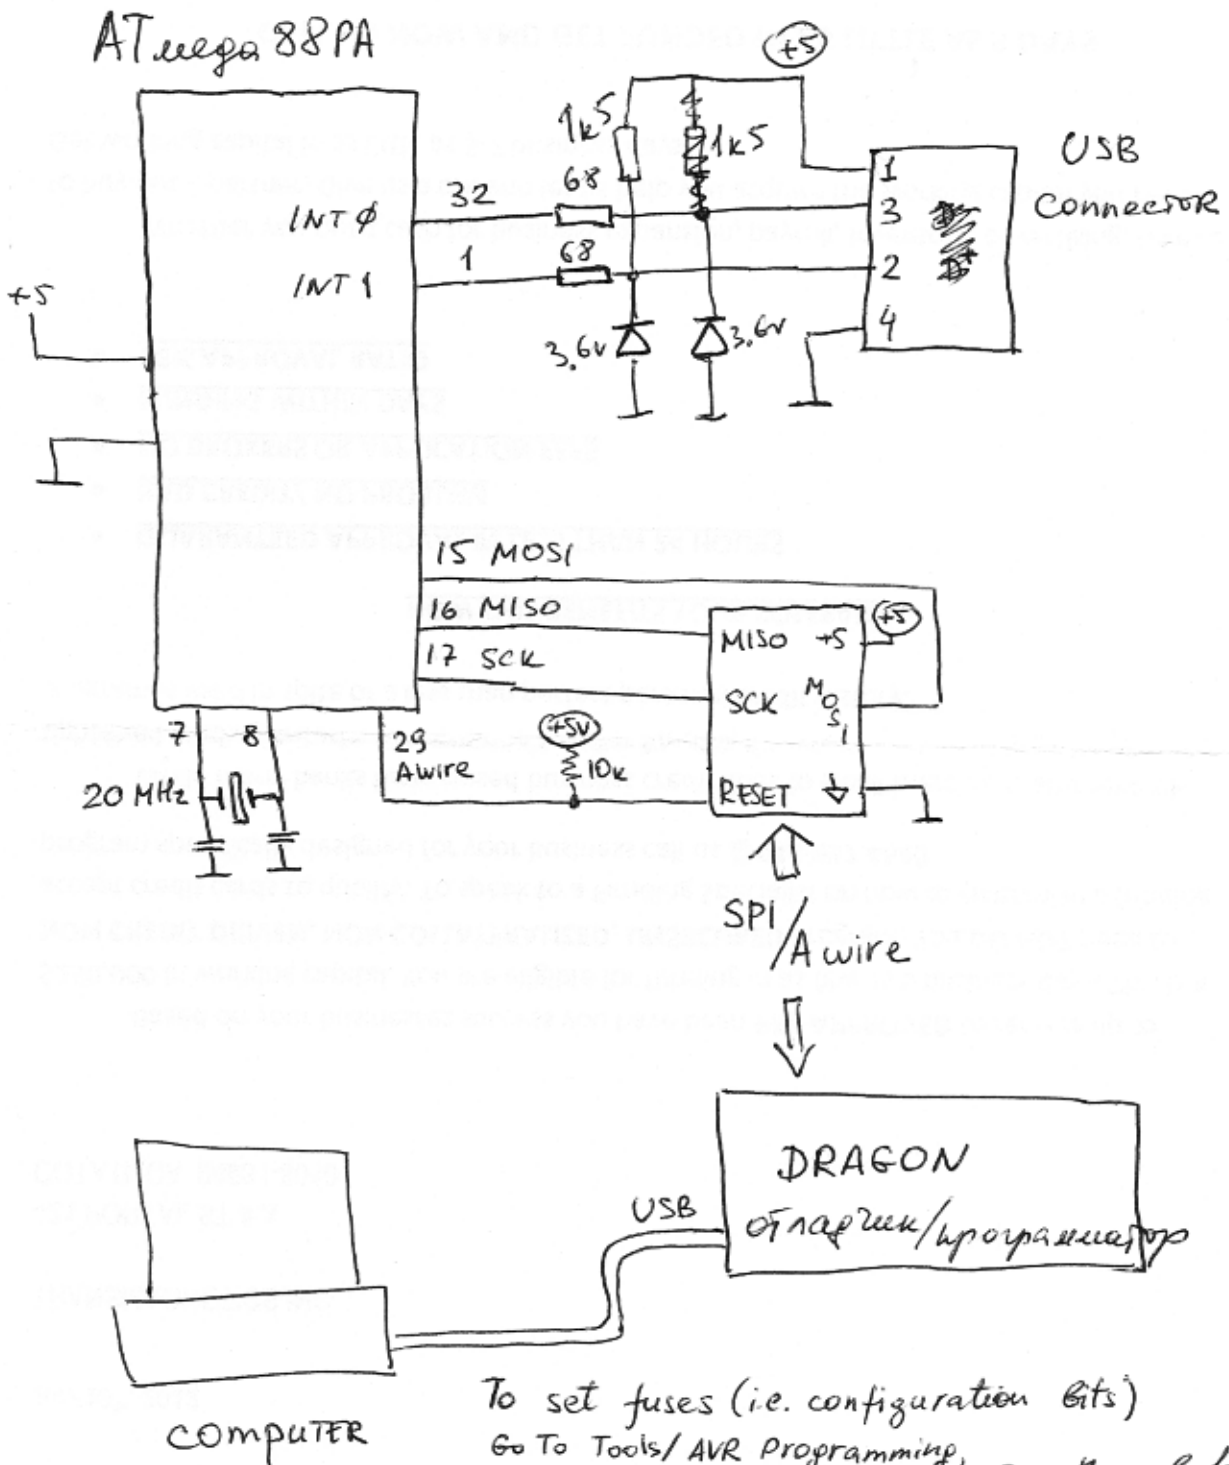 ATmega 88PA
+5
1k5
1k5
USB
Connector
INTØ
32
68
1
3
INT1
1
68
2
+5
3.6v
3.6v
4
15 MOSI
16 MISO
MISO
+5
+5
17 SCK
SCK
MOSI
7
8
29
Awire
+5v
10k
20 MHz
RESET
SPI
/Awire
DRAGON
отладчик/программатор
USB
COMPUTER
To set fuses (i.e. configuration bits)
Go To Tools/ AVR Programming